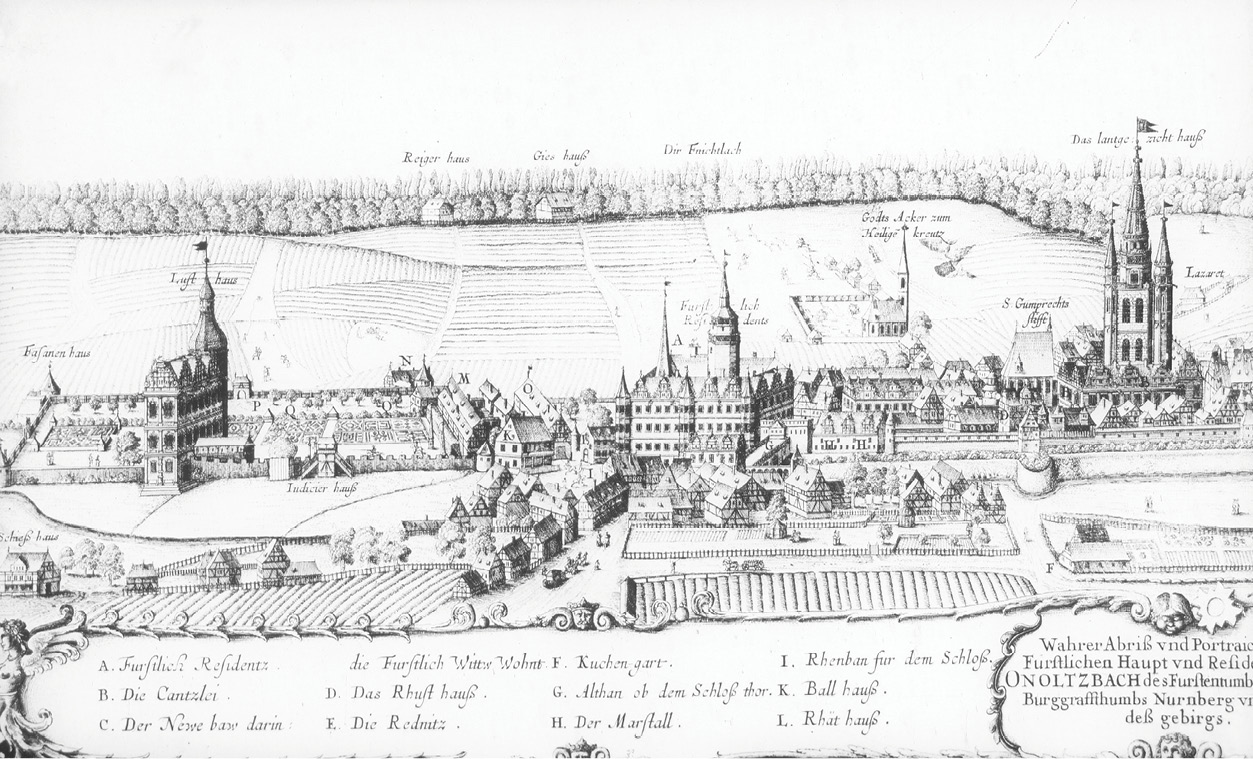 Reiger haus
Gies hauß
Das lantge zicht hauß
Godts Acker zum
Heilige kreutz
Lust haus
Lazaret
S Gumprechts
stifft
Furst lich
Resi dents
A
Fasanen haus
N
M
O
P Q Q
K
I H H
D
Indicier hauß
Schieß haus
F
A. Furstlich Residentz.
B. Die Cantzlei.
C. Der Newe baw darin:
die Furstlich Wittw Wohnt
D. Das Rhust hauß.
E. Die Rednitz.
F. Kuchen gart.
G. Althan ob dem Schloß thor.
H. Der Marstall.
I. Rhenban fur dem Schloß.
K. Ball hauß.
L. Rhät hauß.
Wahrer Abriß vnd Portraic
Furstlichen Haupt vnd Resid
ONOLTZBACH des Furstentumb
Burggraffthumbs Nurnberg v
deß gebirgs.